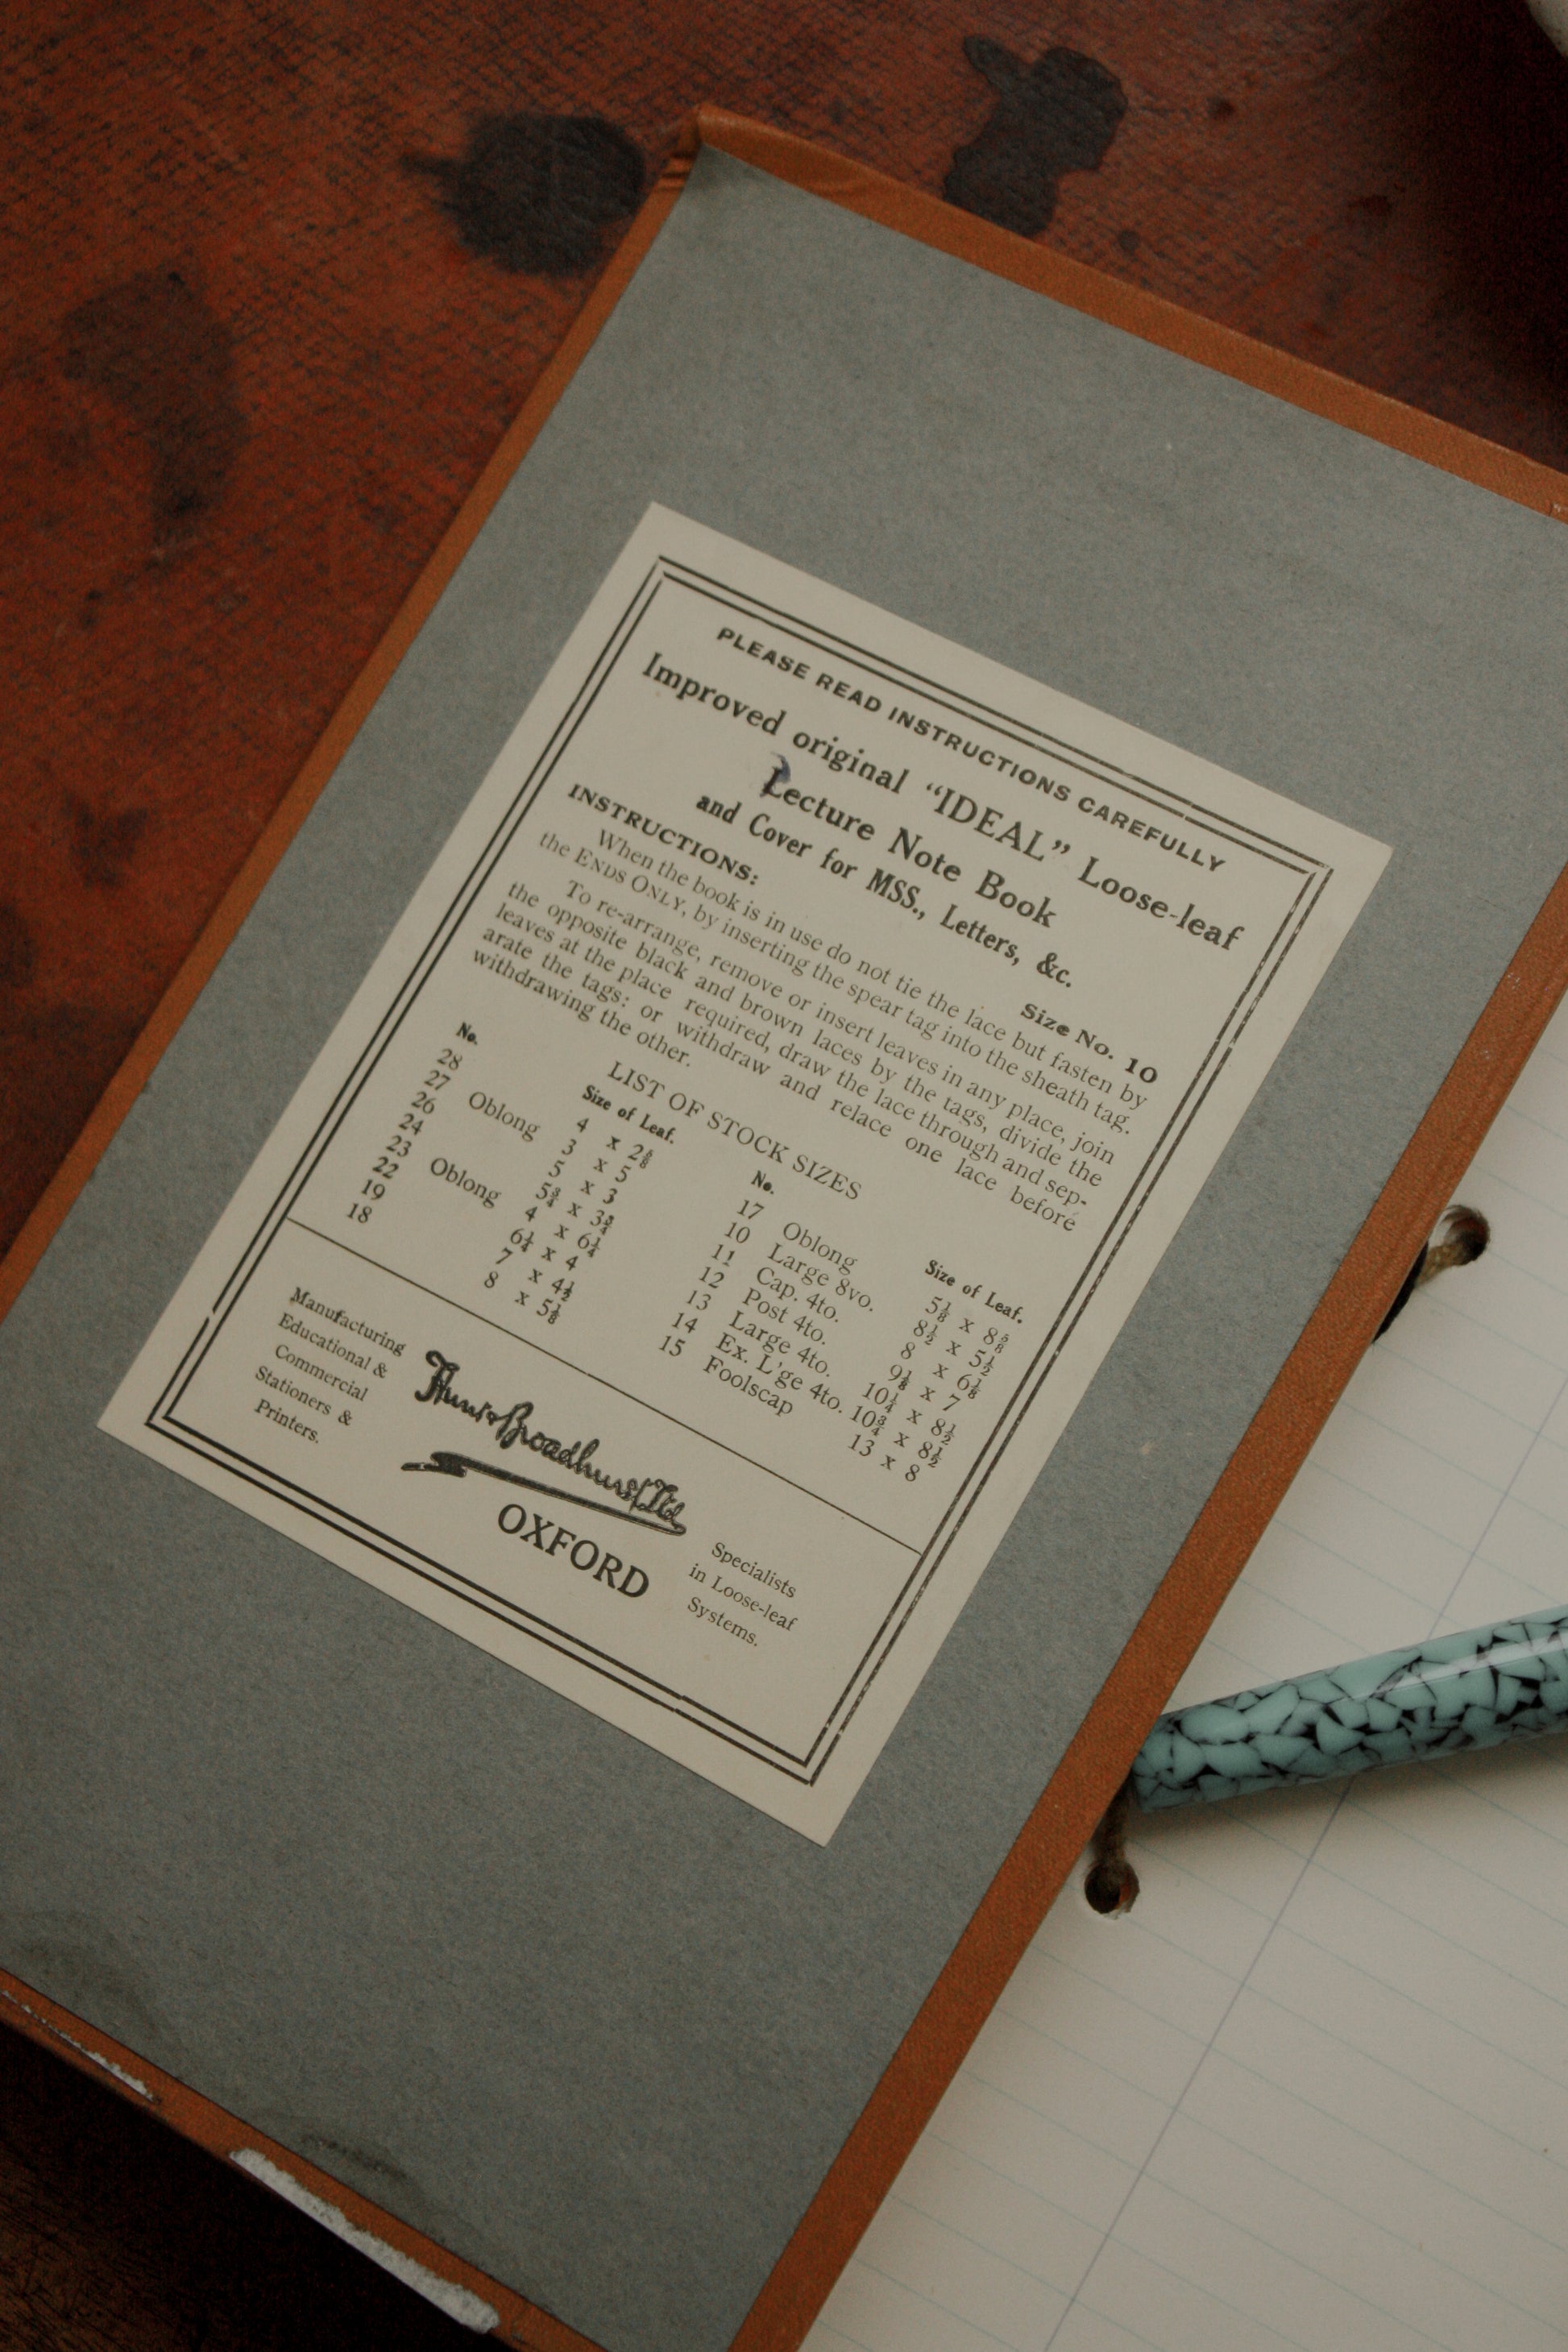 PLEASE READ INSTRUCTIONS CAREFULLY
Improved original “IDEAL” Loose-leaf
Lecture Note Book
and Cover for MSS., Letters, &c.
Size No. 10
INSTRUCTIONS:
When the book is in use do not tie the lace but fasten by
the ENDS ONLY, by inserting the spear tag into the sheath tag.
To re-arrange, remove or insert leaves in any place, join
the opposite black and brown laces by the tags, divide the
leaves at the place required, draw the lace through and sep-
arate the tags: or withdraw and relace one lace before
withdrawing the other.
LIST OF STOCK SIZES
No. Size of Leaf.
28 4 x 2⅝
27 Oblong 3 x 5
26 5 x 3
24 5¾ x 3¾
23 Oblong 4 x 6¼
22 6¼ x 4
19 7 x 4½
18 8 x 5⅛
No. Size of Leaf.
17 Oblong 5⅛ x 8⅝
10 Large 8vo. 8½ x 5½
11 Cap. 4to. 8 x 6⅛
12 Post 4to. 9⅛ x 7
13 Large 4to. 10¼ x 8½
14 Ex. L'ge 4to. 10¾ x 8½
15 Foolscap 13 x 8
Manufacturing
Educational &
Commercial
Stationers &
Printers.
Hunt & Broadhurst Ltd
OXFORD
Specialists
in Loose-leaf
Systems.